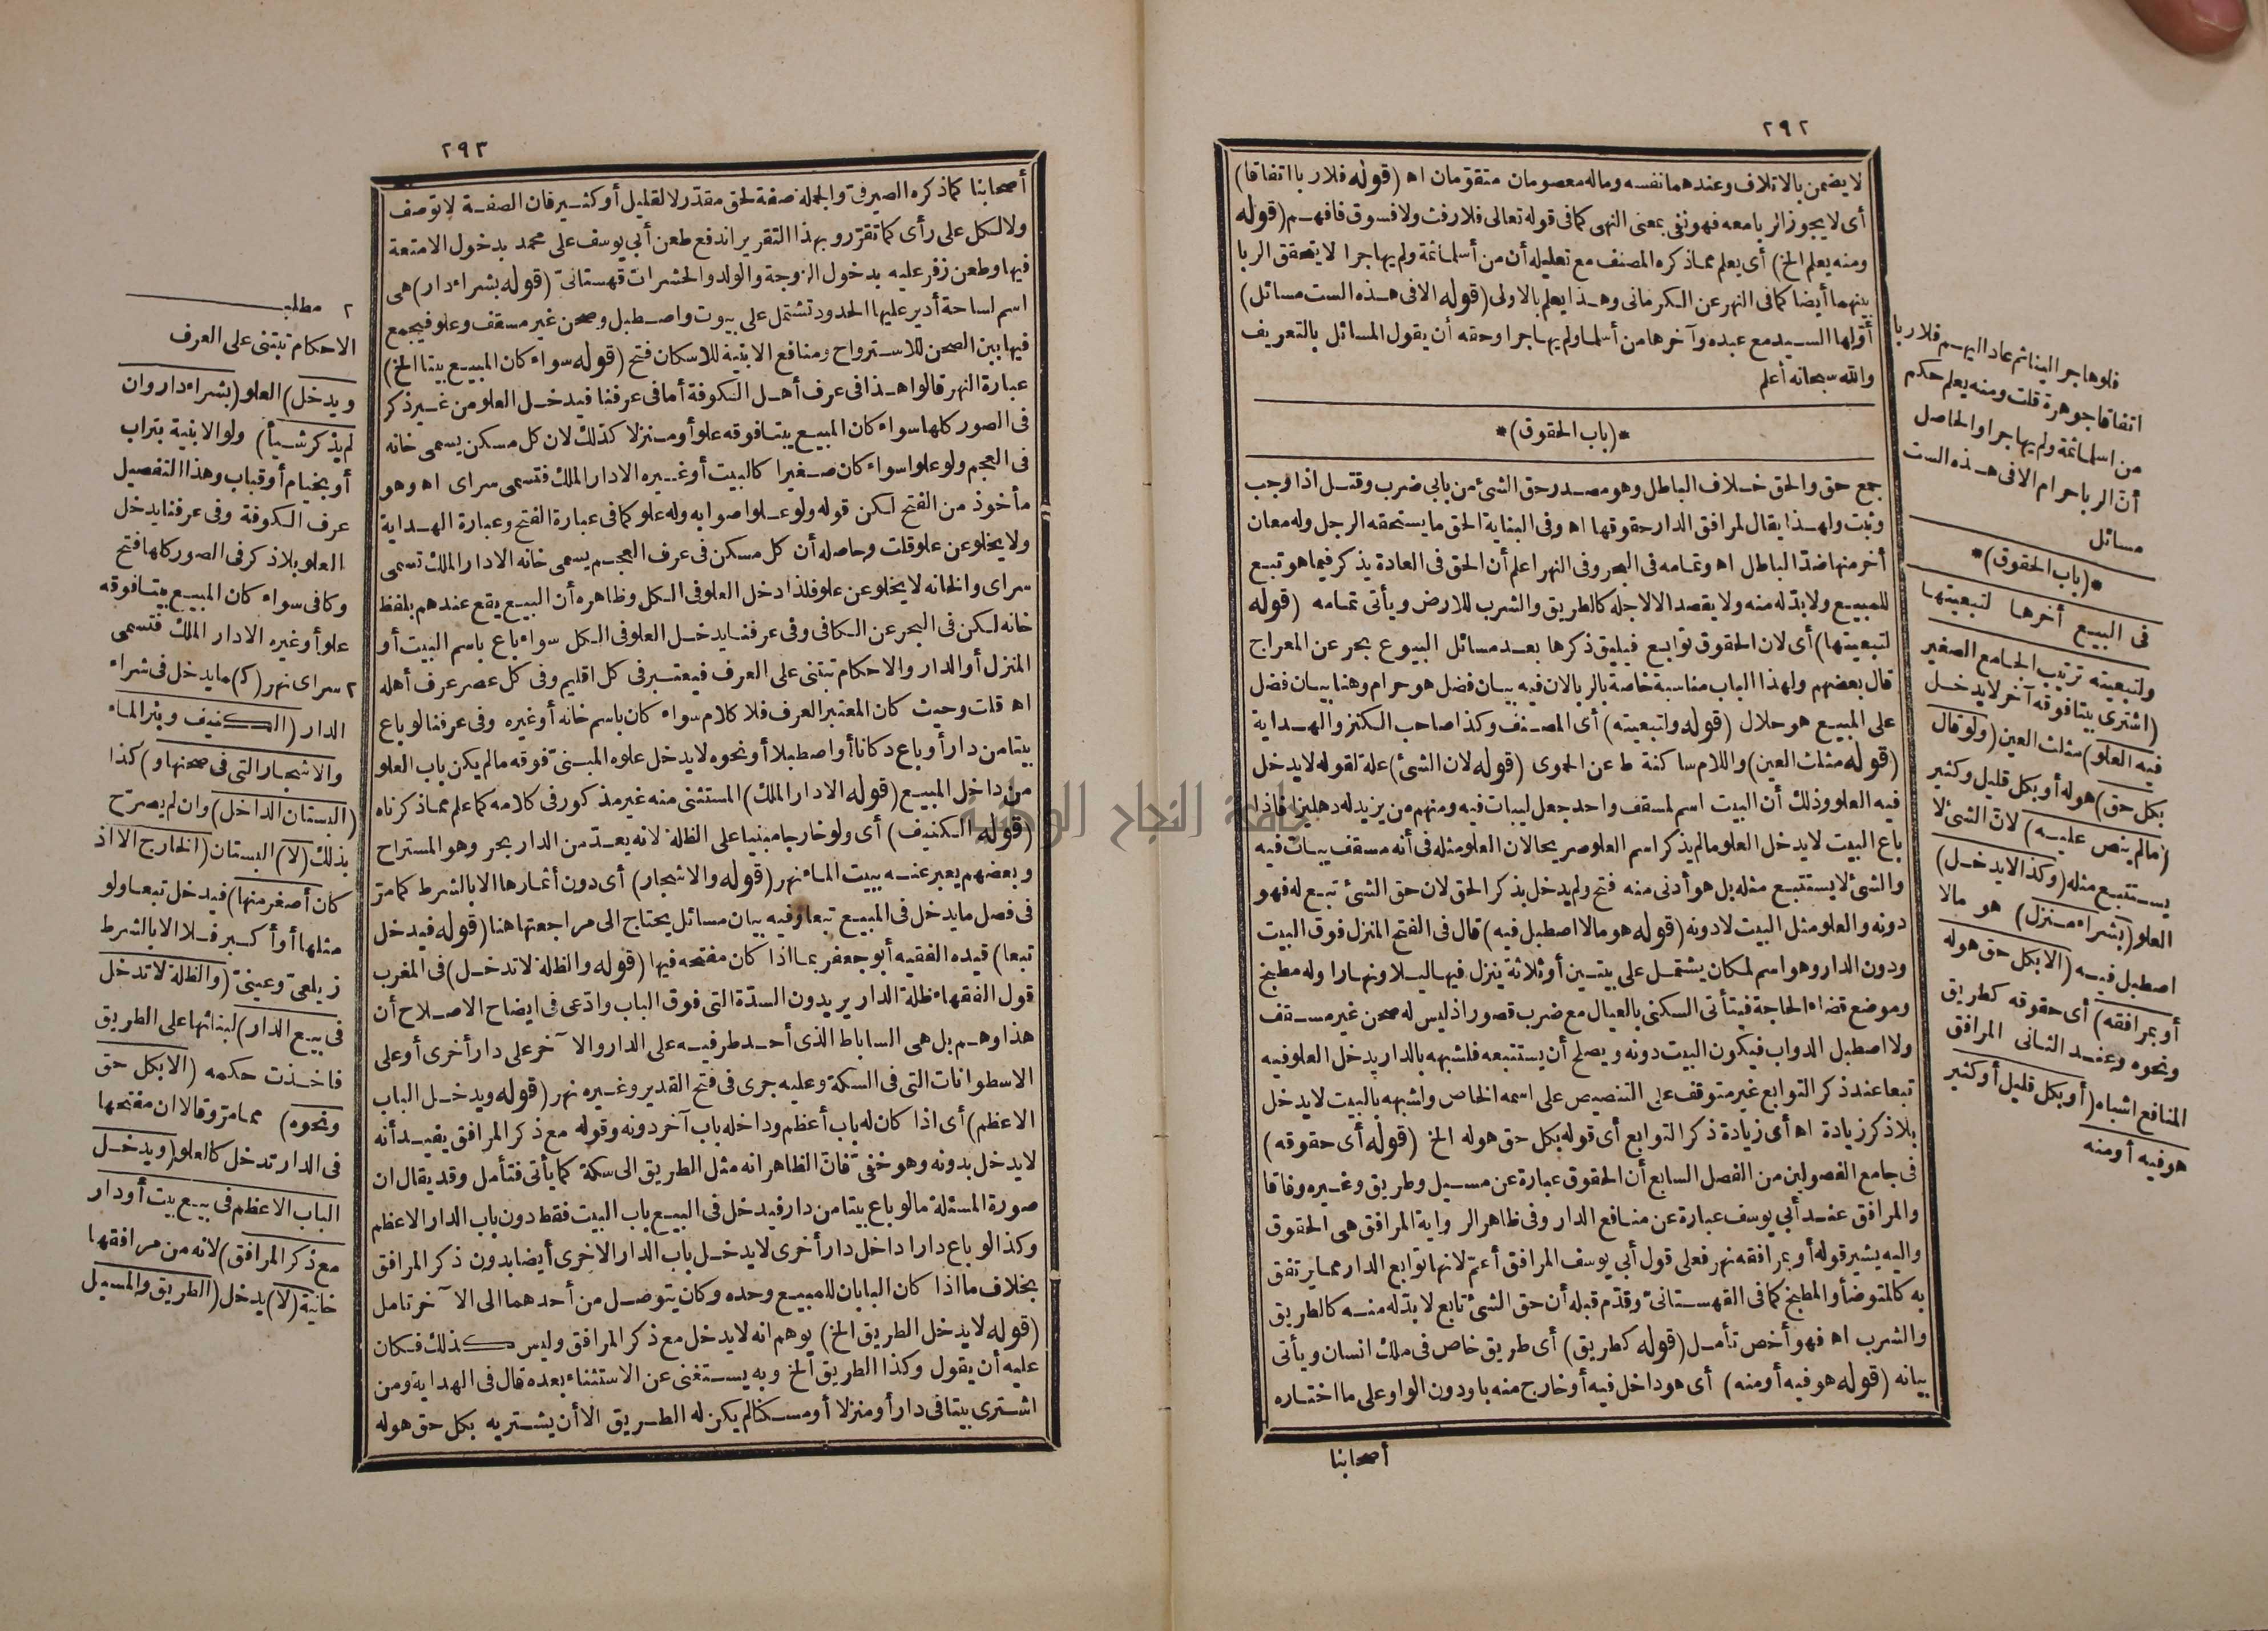 ٢٩٢
لا يضمن بالاتلاف وعندهما نفسه وماله معصومان متقوّمان اه (قوله فلا ربا اتفاقا)
أى لا يجوز الربا معه فهو نفى بمعنى النهى كما فى قوله تعالى فلا رفث ولا فسوق فافهم (قوله
ومنه يعلم الخ) أى يعلم مما ذكره المصنف مع تعليله أن من أسلما ثمة ولم يهاجرا لا يتحقق الربا
بينهما أيضا كما فى النهر عن الكرمانى وهذا يعلم بالاولى (قوله الا فى هذه الست مسائل)
أوّلها السيد مع عبده وآخرها من أسلما ولم يهاجرا وحقه أن يقول المسائل بالتعريف
والله سبحانه أعلم
*(باب الحقوق)*
جمع حق والحق خلاف الباطل وهو مصدر حق الشئ من بابى ضرب وقتل اذا وجب
وثبت ولهذا يقال لمرافق الدار حقوقها اه وفى البناية الحق ما يستحقه الرجل وله معان
أخر منها ضدّ الباطل اه وتمامه فى البحر وفى النهر اعلم أن الحق فى العادة يذكر فيما هو تبع
للمبيع ولا بدّ له منه ولا يقصد الا لاجله كالطريق والشرب للارض ويأتى تمامه (قوله
لتبعيتها) أى لان الحقوق توابع فيليق ذكرها بعد مسائل البيوع بحر عن المعراج
قال بعضهم ولهذا الباب مناسبة خاصة بالربا لان فيه بيان فضل هو حرام وهنا بيان فضل
على المبيع هو حلال (قوله ولتبعيته) أى المصنف وكذا صاحب الكنز والهداية
(قوله مثلث العين) واللام ساكنة ط عن الحموى (قوله لان الشئ) علة لقوله لا يدخل
فيه العلو وذلك أن البيت اسم لمسقف واحد جعل ليبات فيه ومنهم من يزيد له دهليزا فاذا
باع البيت لا يدخل العلو ما لم يذكر اسم العلو صريحا لان العلو مثله فى أنه مسقف يبات فيه
والشئ لا يستتبع مثله بل هو أدنى منه فتح ولم يدخل بذكر الحق لان حق الشئ تبع له فهو
دونه والعلو مثل البيت لا دونه (قوله هو ما لا اصطبل فيه) قال فى الفتح المنزل فوق البيت
ودون الدار وهو اسم لمكان يشتمل على بيتين أو ثلاثة ينزل فيها ليلا ونهارا وله مطبخ
وموضع قضاء الحاجة فيتأتى السكنى بالعيال مع ضرب قصور اذ ليس له صحن غير مسقف
ولا اصطبل الدواب فيكون البيت دونه ويصلح أن يستتبعه فلشبهه بالدار يدخل العلو فيه
تبعا عند ذكر التوابع غير متوقف على التنصيص على اسمه الخاص ولشبهه بالبيت لا يدخل
بلا ذكر زيادة اه أى زيادة ذكر التوابع أى قوله بكل حق هو له الخ (قوله أى حقوقه)
فى جامع الفصولين من الفصل السابع أن الحقوق عبارة عن مسيل وطريق وغيره وفاقا
والمرافق عند أبى يوسف عبارة عن منافع الدار وفى ظاهر الرواية المرافق هى الحقوق
واليه يشير قوله أو بمرافقه نهر فعلى قول أبى يوسف المرافق أعمّ لانها توابع الدار مما يرتفق
به كالمتوضأ والمطبخ كما فى القهستانىّ وقدّم قبله أن حق الشئ تابع لا بدّ له منه كالطريق
والشرب اه فهو أخص تأمل (قوله كطريق) أى طريق خاص فى ملك انسان ويأتى
بيانه (قوله هو فيه أو منه) أى هو داخل فيه أو خارج منه باو دون الواو على ما اختاره
أصحابنا
فلو هاجر الينا ثم عاد اليهم فلا ربا
اتفاقا جوهرة قلت ومنه يعلم حكم
من اسلما ثمة ولم يهاجرا والحاصل
أن الربا حرام الا فى هذه الست
مسائل
*(باب الحقوق)*
فى البيع أخرها لتبعيتها
ولتبعيته ترتيب الجامع الصغير
(اشترى بيتا فوقه آخر لا يدخل
فيه العلو) مثلث العين (ولو قال
بكل حق) هو له أو بكل قليل وكثير
(ما لم ينص عليه) لان الشئ لا
يستتبع مثله (وكذا لا يدخل)
العلو (بشراء منزل) هو ما لا
اصطبل فيه (الا بكل حق هو له
أو بمرافقه) أى حقوقه كطريق
ونحوه وعند الثانى المرافق
المنافع اشباه (أو بكل قليل أو كثير
هو فيه أو منه
٢٩٣
أصحابنا كما ذكره الصيرفىّ والجملة صفة لحق مقدّر لا لقليل أو كثير فان الصفة لا توصف
ولا لكل على رأى كما تقرّر وبهذا التقرير اندفع طعن أبى يوسف على محمد بدخول الامتعة
فيها وطعن زفر عليه بدخول الزوجة والولد والحشرات قهستانىّ (قوله بشراء دار) هى
اسم لساحة أدير عليها الحدود تشتمل على بيوت واصطبل وصحن غير مسقف وعلو فيجمع
فيها بين الصحن للاسترواح ومنافع الابنية للاسكان فتح (قوله سواء كان المبيع بيتا الخ)
عبارة النهر قالوا هذا فى عرف أهل الكوفة أما فى عرفنا فيدخل العلو من غير ذكر
فى الصور كلها سواء كان المبيع بيتا فوقه علو أو منزلا كذلك لان كل مسكن يسمى خانه
فى العجم ولو علوا سواء كان صغيرا كالبيت أو غيره الا دار الملك فتسمى سراى اه وهو
مأخوذ من الفتح لكن قوله ولو علوا صوابه وله علو كما فى عبارة الفتح وعبارة الهداية
ولا يخلو عن علو قلت وحاصله أن كل مسكن فى عرف العجم يسمى خانه الا دار الملك تسمى
سراى والخانه لا يخلو عن علو فلذا دخل العلو فى الكل وظاهره أن البيع يقع عندهم بلفظ
خانه لكن فى البحر عن الكافى وفى عرفنا يدخل العلو فى الكل سواء باع باسم البيت أو
المنزل أو الدار والاحكام تبتنى على العرف فيعتبر فى كل اقليم وفى كل عصر عرف أهله
اه قلت وحيث كان المعتبر العرف فلا كلام سواء كان باسم خانه أو غيره وفى عرفنا لو باع
بيتا من دار أو باع دكانا أو اصطبلا أو نحوه لا يدخل علوه المبنىّ فوقه ما لم يكن باب العلو
من داخل المبيع (قوله الا دار الملك) المستثنى منه غير مذكور فى كلامه كما علم مما ذكرناه
(قوله الكنيف) أى ولو خارجا مبنيا على الظلة لانه يعدّ من الدار بحر وهو المستراح
وبعضهم يعبر عنه ببيت الماء نهر (قوله والاشجار) أى دون أثمارها الا بالشرط كما مرّ
فى فصل ما يدخل فى المبيع تبعا وفيه بيان مسائل يحتاج الى مراجعتها هنا (قوله فيدخل
تبعا) قيده الفقيه أبو جعفر بما اذا كان مفتحه فيها (قوله والظلة لا تدخل) فى المغرب
قول الفقهاء ظلة الدار يريدون السدّة التى فوق الباب وادّعى فى ايضاح الاصلاح أن
هذا وهم بل هى الساباط الذى أحد طرفيه على الدار والآخر على دار أخرى أو على
الاسطوانات التى فى السكة وعليه جرى فى فتح القدير وغيره نهر (قوله ويدخل الباب
الاعظم) أى اذا كان له باب أعظم وداخله باب آخر دونه وقوله مع ذكر المرافق يفيد أنه
لا يدخل بدونه وهو خفىّ فان الظاهر انه مثل الطريق الى سكة كما يأتى فتأمل وقد يقال ان
صورة المسئلة ما لو باع بيتا من دار فيدخل فى البيع باب البيت فقط دون باب الدار الاعظم
وكذا لو باع دارا داخل دار أخرى لا يدخل باب الدار الاخرى أيضا بدون ذكر المرافق
بخلاف ما اذا كان البابان للمبيع وحده وكان يتوصل من أحدهما الى الآخر تامل
(قوله لا يدخل الطريق الخ) يوهم انه لا يدخل مع ذكر المرافق وليس كذلك فكان
عليه أن يقول وكذا الطريق الخ وبه يستغنى عن الاستثناء بعده قال فى الهداية ومن
اشترى بيتا فى دار أو منزلا أو مسكنا لم يكن له الطريق الا أن يشتريه بكل حق هو له
٢ مطلب
الاحكام تبتنى على العرف
ويدخل) العلو (بشراء دار وان
لم يذكر شيأ) ولو الابنية بتراب
أو بخيام أو قباب وهذا التفصيل
عرف الكوفة وفى عرفنا يدخل
العلو بلا ذكر فى الصور كلها فتح
وكافى سواء كان المبيع بيتا فوقه
علو أو غيره الا دار الملك فتسمى
٢ سراى نهر (كـ) ما يدخل فى شراء
الدار (الكنيف وبئر الماء
والاشجار التى فى صحنها و) كذا
(البستان الداخل) وان لم يصرّح
بذلك (لا) البستان (الخارج الا اذ
كان أصغر منها) فيدخل تبعا ولو
مثلها أو أكبر فلا الا بالشرط
زيلعىّ وعينىّ (والظلة لا تدخل
فى بيع الدار) لبنائها على الطريق
فاخذت حكمه (الا بكل حق
ونحوه) مما مرّ وقالا ان مفتحها
فى الدار تدخل كالعلو (ويدخل
الباب الاعظم فى بيع بيت أو دار
مع ذكر المرافق) لانه من مرافقها
خانية (لا) يدخل (الطريق والمسيل